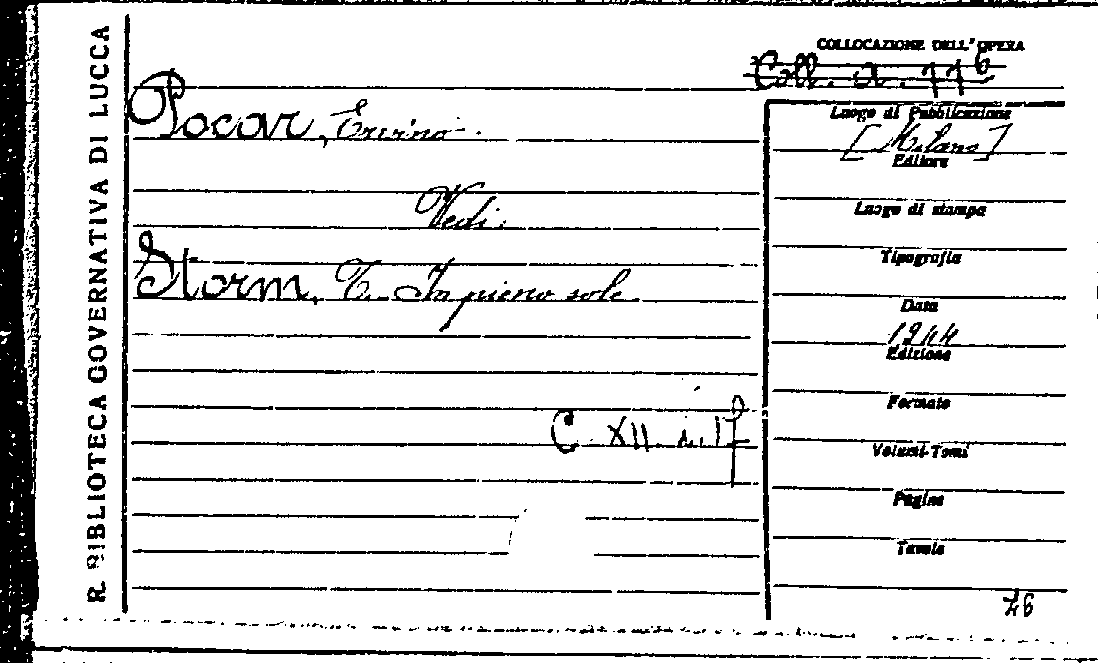 R. BIBLIOTECA GOVERNATIVA DI LUCCA
COLLOCAZIONE DELL'OPERA
Coll. A. 116
Pocar, Ervino.
Vedi:
Storm, T. In pieno sole
C. XII.
Luogo di Pubblicazione
[Milano]
Editore
Luogo di stampa
Tipografia
Data
1944
Edizione
Formato
Volumi-Tomi
Pagine
Tavole
46